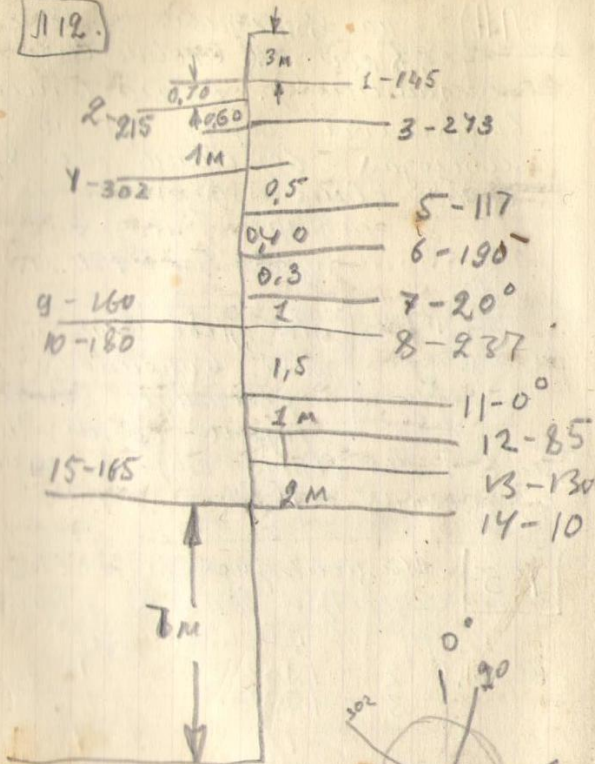 Л 12.
3м
1-145
0,70
2-215
0,60
3-273
1м
4-302
0,5
5-117
0,40
6-190
0.3
7-20°
9-160
1
10-180
8-237
1,5
11-0°
1 м
12-85
13-130
15-165
2 м
14-10
0°
302